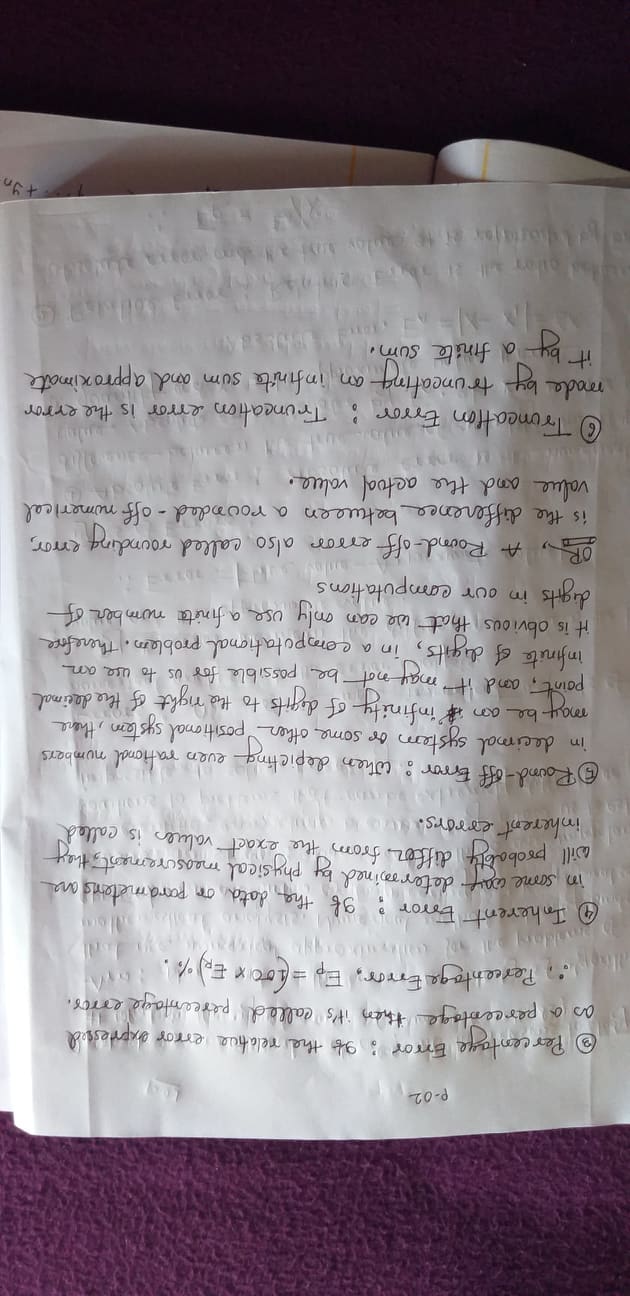 P-02
③ Percentage Error : If the relative error expressed
as a percentage then it's called percentage error.
∴, Percentage Error, E_P = (100 × E_R) %.
④ Inherent Error : If the data or parameters are
in some way determined by physical measurement, they
will probably differ from the exact values is called
inherent errors.
⑤ Round-off Error : When depicting even rational numbers
in decimal system or some other positional system, there
may be an infinity of digits to the right of the decimal
point, and it may not be possible for us to use an
infinite of digits, in a computational problem. Therefore
it is obvious that we can only use a finite number of
digits in our computations
OR, A Round-off error also called rounding error,
is the difference between a rounded-off numerical
value and the actual value.
⑥ Truncation Error : Truncation error is the error
made by truncating an infinite sum and approximate
it by a finite sum.
+ y_n